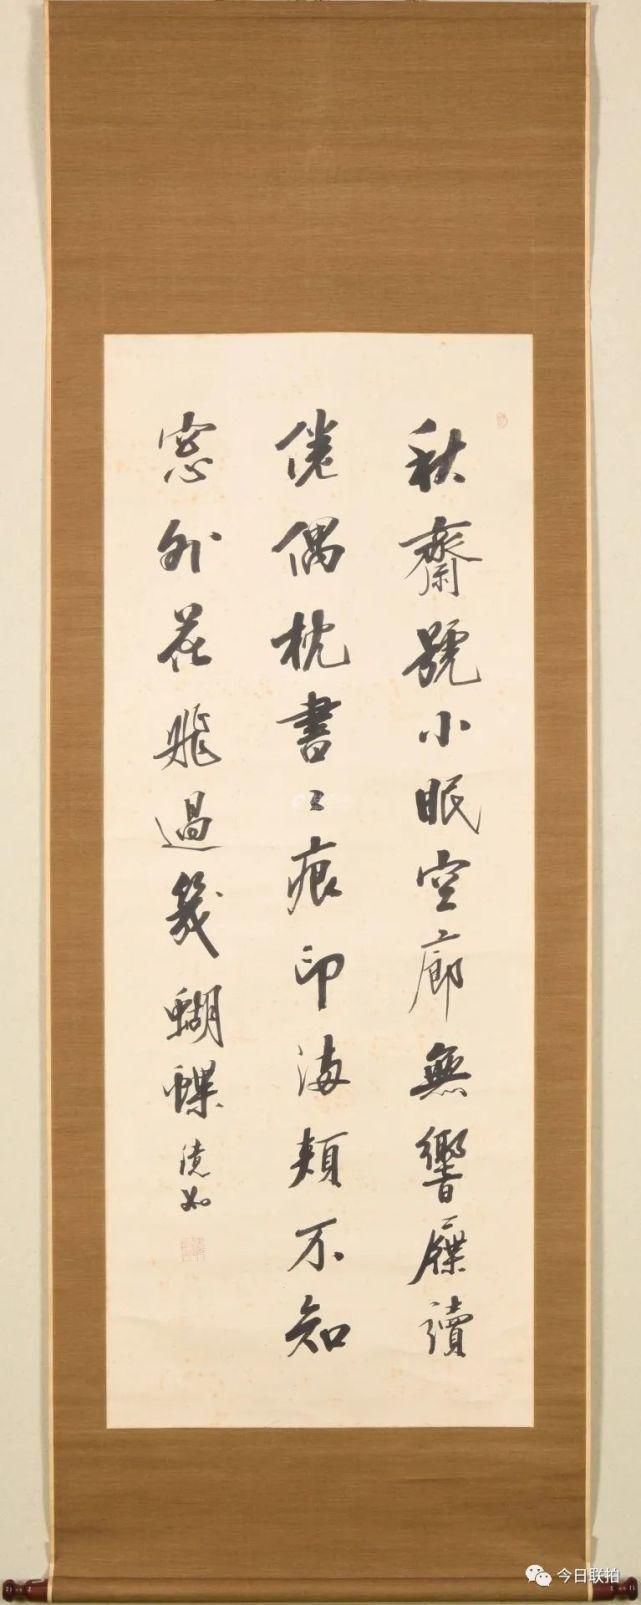 秋齋號小眠空廊無響屧讀
倦偶枕書〻痕印滿頰不知
窓外花飛過幾蝴蝶
澹如
今日联拍